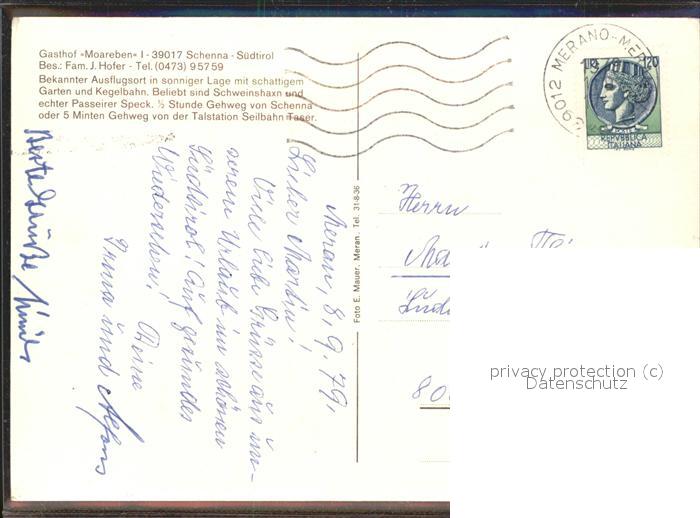 Gasthof »Moareben« I - 39017 Schenna - Südtirol
Bes.: Fam. J. Hofer - Tel. (0473) 95759
Bekannter Ausflugsort in sonniger Lage mit schattigem
Garten und Kegelbahn. Beliebt sind Schweinshaxn und
echter Passeirer Speck. ½ Stunde Gehweg von Schenna
oder 5 Minten Gehweg von der Talstation Seilbahn Taser.
Meran, 8.9.79.
Lieber Martin!
Viele liebe Grüsse aus un-
serem Urlaub im schönen
Südtirol! Auf gesundes
Wiedersehen! Deine
und Alfons
Beste Grüße
Foto E. Mauer, Meran, Tel. 31-8-36
39012 MERANO-MER
120
POSTE
REPVBBLICA
ITALIANA
Herrn
80
privacy protection (c)
Datenschutz